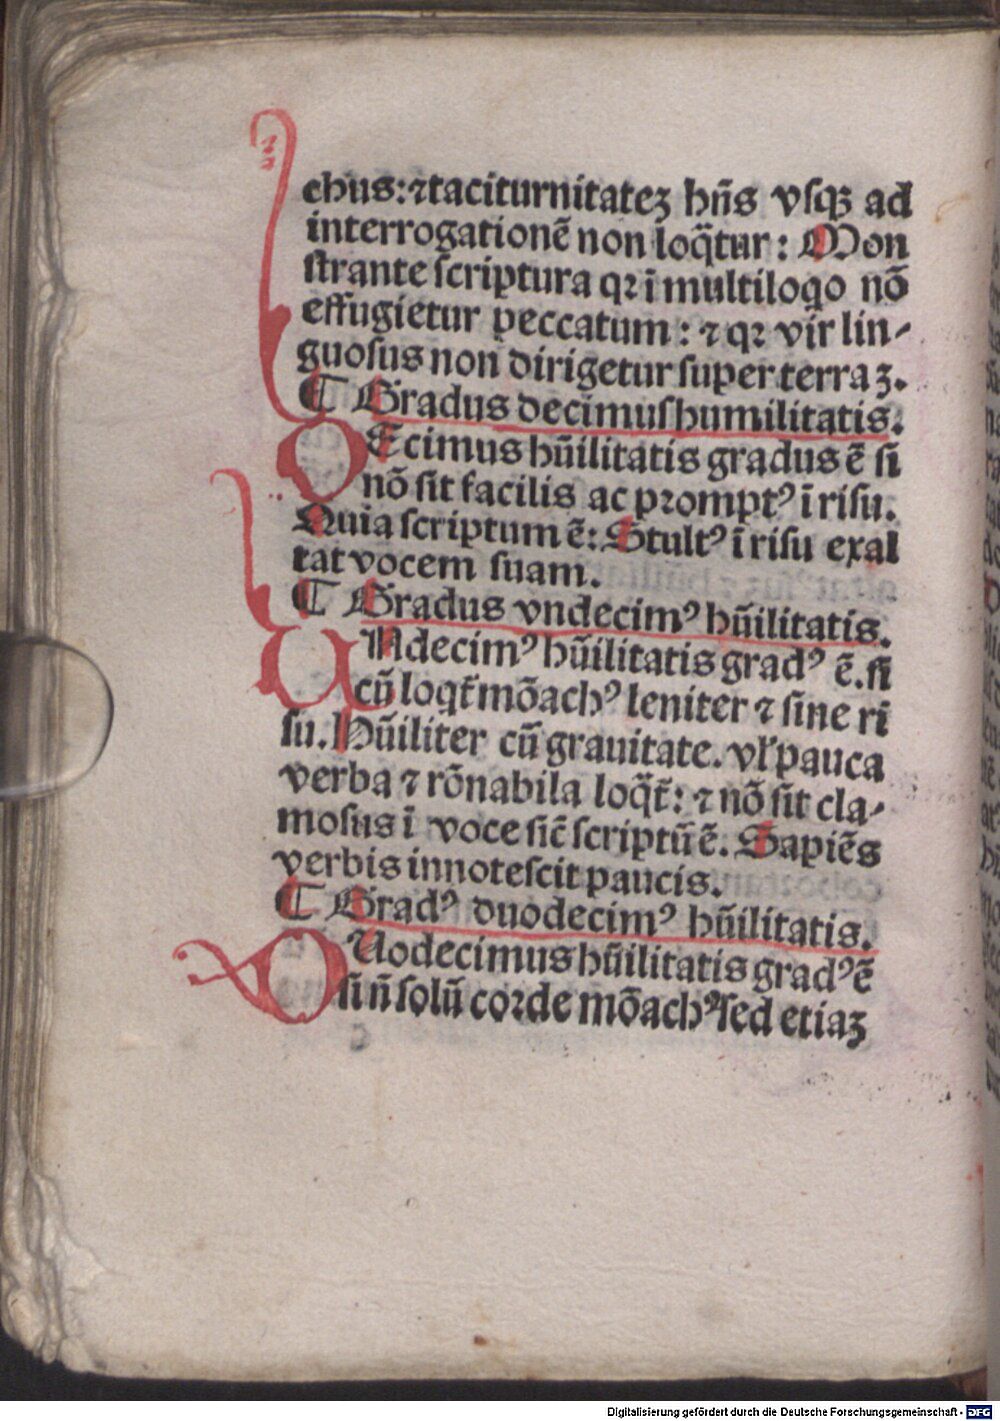 chus: ⁊ taciturnitateꝫ hn̄s vſqꝫ ad
interrogationē non loq̄tur: Mon
ſtrante ſcriptura qꝛ ī multiloqo nō
effugietur peccatum: ⁊ qꝛ vir lin⸗
guoſus non dirigetur ſuper terraꝫ.
¶ Gradus decimus humilitatis.
DEcimus hūilitatis gradus ē ſi
nō ſit facilis ac prompt⁹ ī riſu.
Quia ſcriptum ē: Stult⁹ ī riſu exal
tat vocem suam.
¶ Gradus vndecim⁹ hūilitatis.
UNdecim⁹ hūilitatis grad⁹ ē. ſi
cū loqt̄ mōach⁹ leniter ⁊ ſine ri
ſu. Hūiliter cū grauitate. vł pauca
verba ⁊ rōnabila loq̄t̄: ⁊ nō ſit cla⸗
moſus ī voce ſic̄ ſcriptū ē. Sapiēs
verbis innoteſcit paucis.
¶ Grad⁹ duodecim⁹ hūilitatis.
DUodecimus hūilitatis grad⁹ ē
ſi n̄ ſolū corde mōach⁹ ſed etiaꝫ
Digitalisierung gefördert durch die Deutsche Forschungsgemeinschaft - DFG